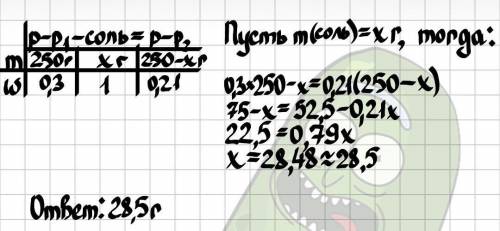 р-р₁-соль=р-р₂
m 250г xг 250-xг
w 0,3 1 0,21
Пусть m(соль)=xг, тогда:
0,3*250-x=0,21(250-x)
75-x=52,5-0,21x
22,5=0,79x
x=28,48≈28,5
Ответ: 28,5г